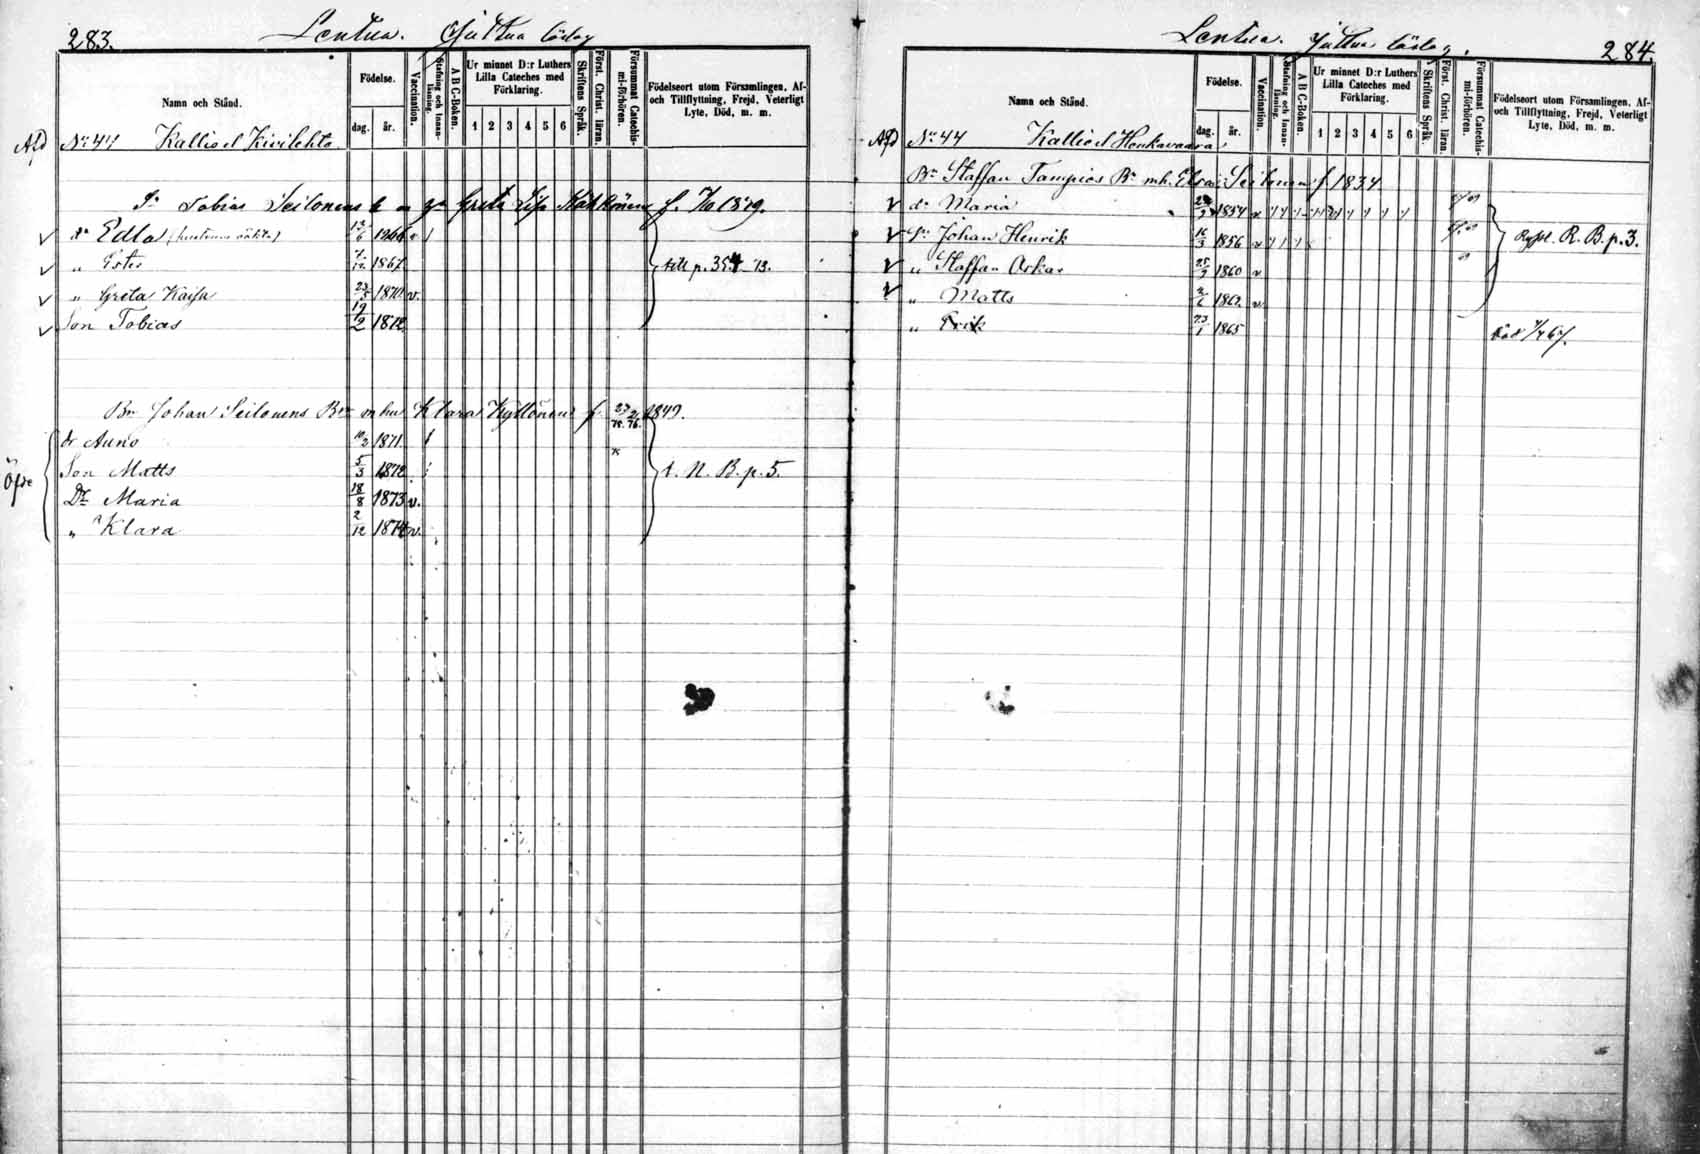 283.
Lentua.
Namn och Stånd.
Födelse.
dag. år.
Vaccination.
Stafning och Innan-läsning.
A B C-Boken.
Ur minnet D:r Luthers Lilla Cateches med Förklaring.
1 2 3 4 5 6
Skriftens Språk.
Först. Christ. läran.
Försummat Catechis-mi-förhören.
Födelseort utom Församlingen, Af- och Tillflyttning, Frejd, Veterligt Lyte, Död, m. m.
Afd No 44 Kallio el Kivilehto
Tobias Seilonens Greta f. 1849.
dr Edla 13/6 1866 v
" Ester 1867 till p. 354 73.
" Greta Kaisa 23/5 1870 v.
Son Tobias 19/2 1872
Bn Johan Seilonens Br m hu Klara Kyllönen f 1849.
dr Anno 10/2 1871
Son Matts 5/3 1872 t. N. B. p. 5.
Dr Maria 18/8 1873 v.
" Klara 2/12 1874 v.
284.
Lentua.
Namn och Stånd.
Födelse.
dag. år.
Vaccination.
Stafning och Innan-läsning.
A B C-Boken.
Ur minnet D:r Luthers Lilla Cateches med Förklaring.
1 2 3 4 5 6
Skriftens Språk.
Först. Christ. läran.
Försummat Catechis-mi-förhören.
Födelseort utom Församlingen, Af- och Tillflyttning, Frejd, Veterligt Lyte, Död, m. m.
Afd No 44 Kallio el Honkavaara
Bn Staffan Tampios Br m.h. Elsa Seilonen f. 1834
dr Maria 1854 v
Sn Johan Henrik 16/3 1856 v R. B. p. 3.
" Staffan Oskar 25/9 1860 v
" Matts 2/6 1862 v.
" Erik 23/1 1865 död 67.